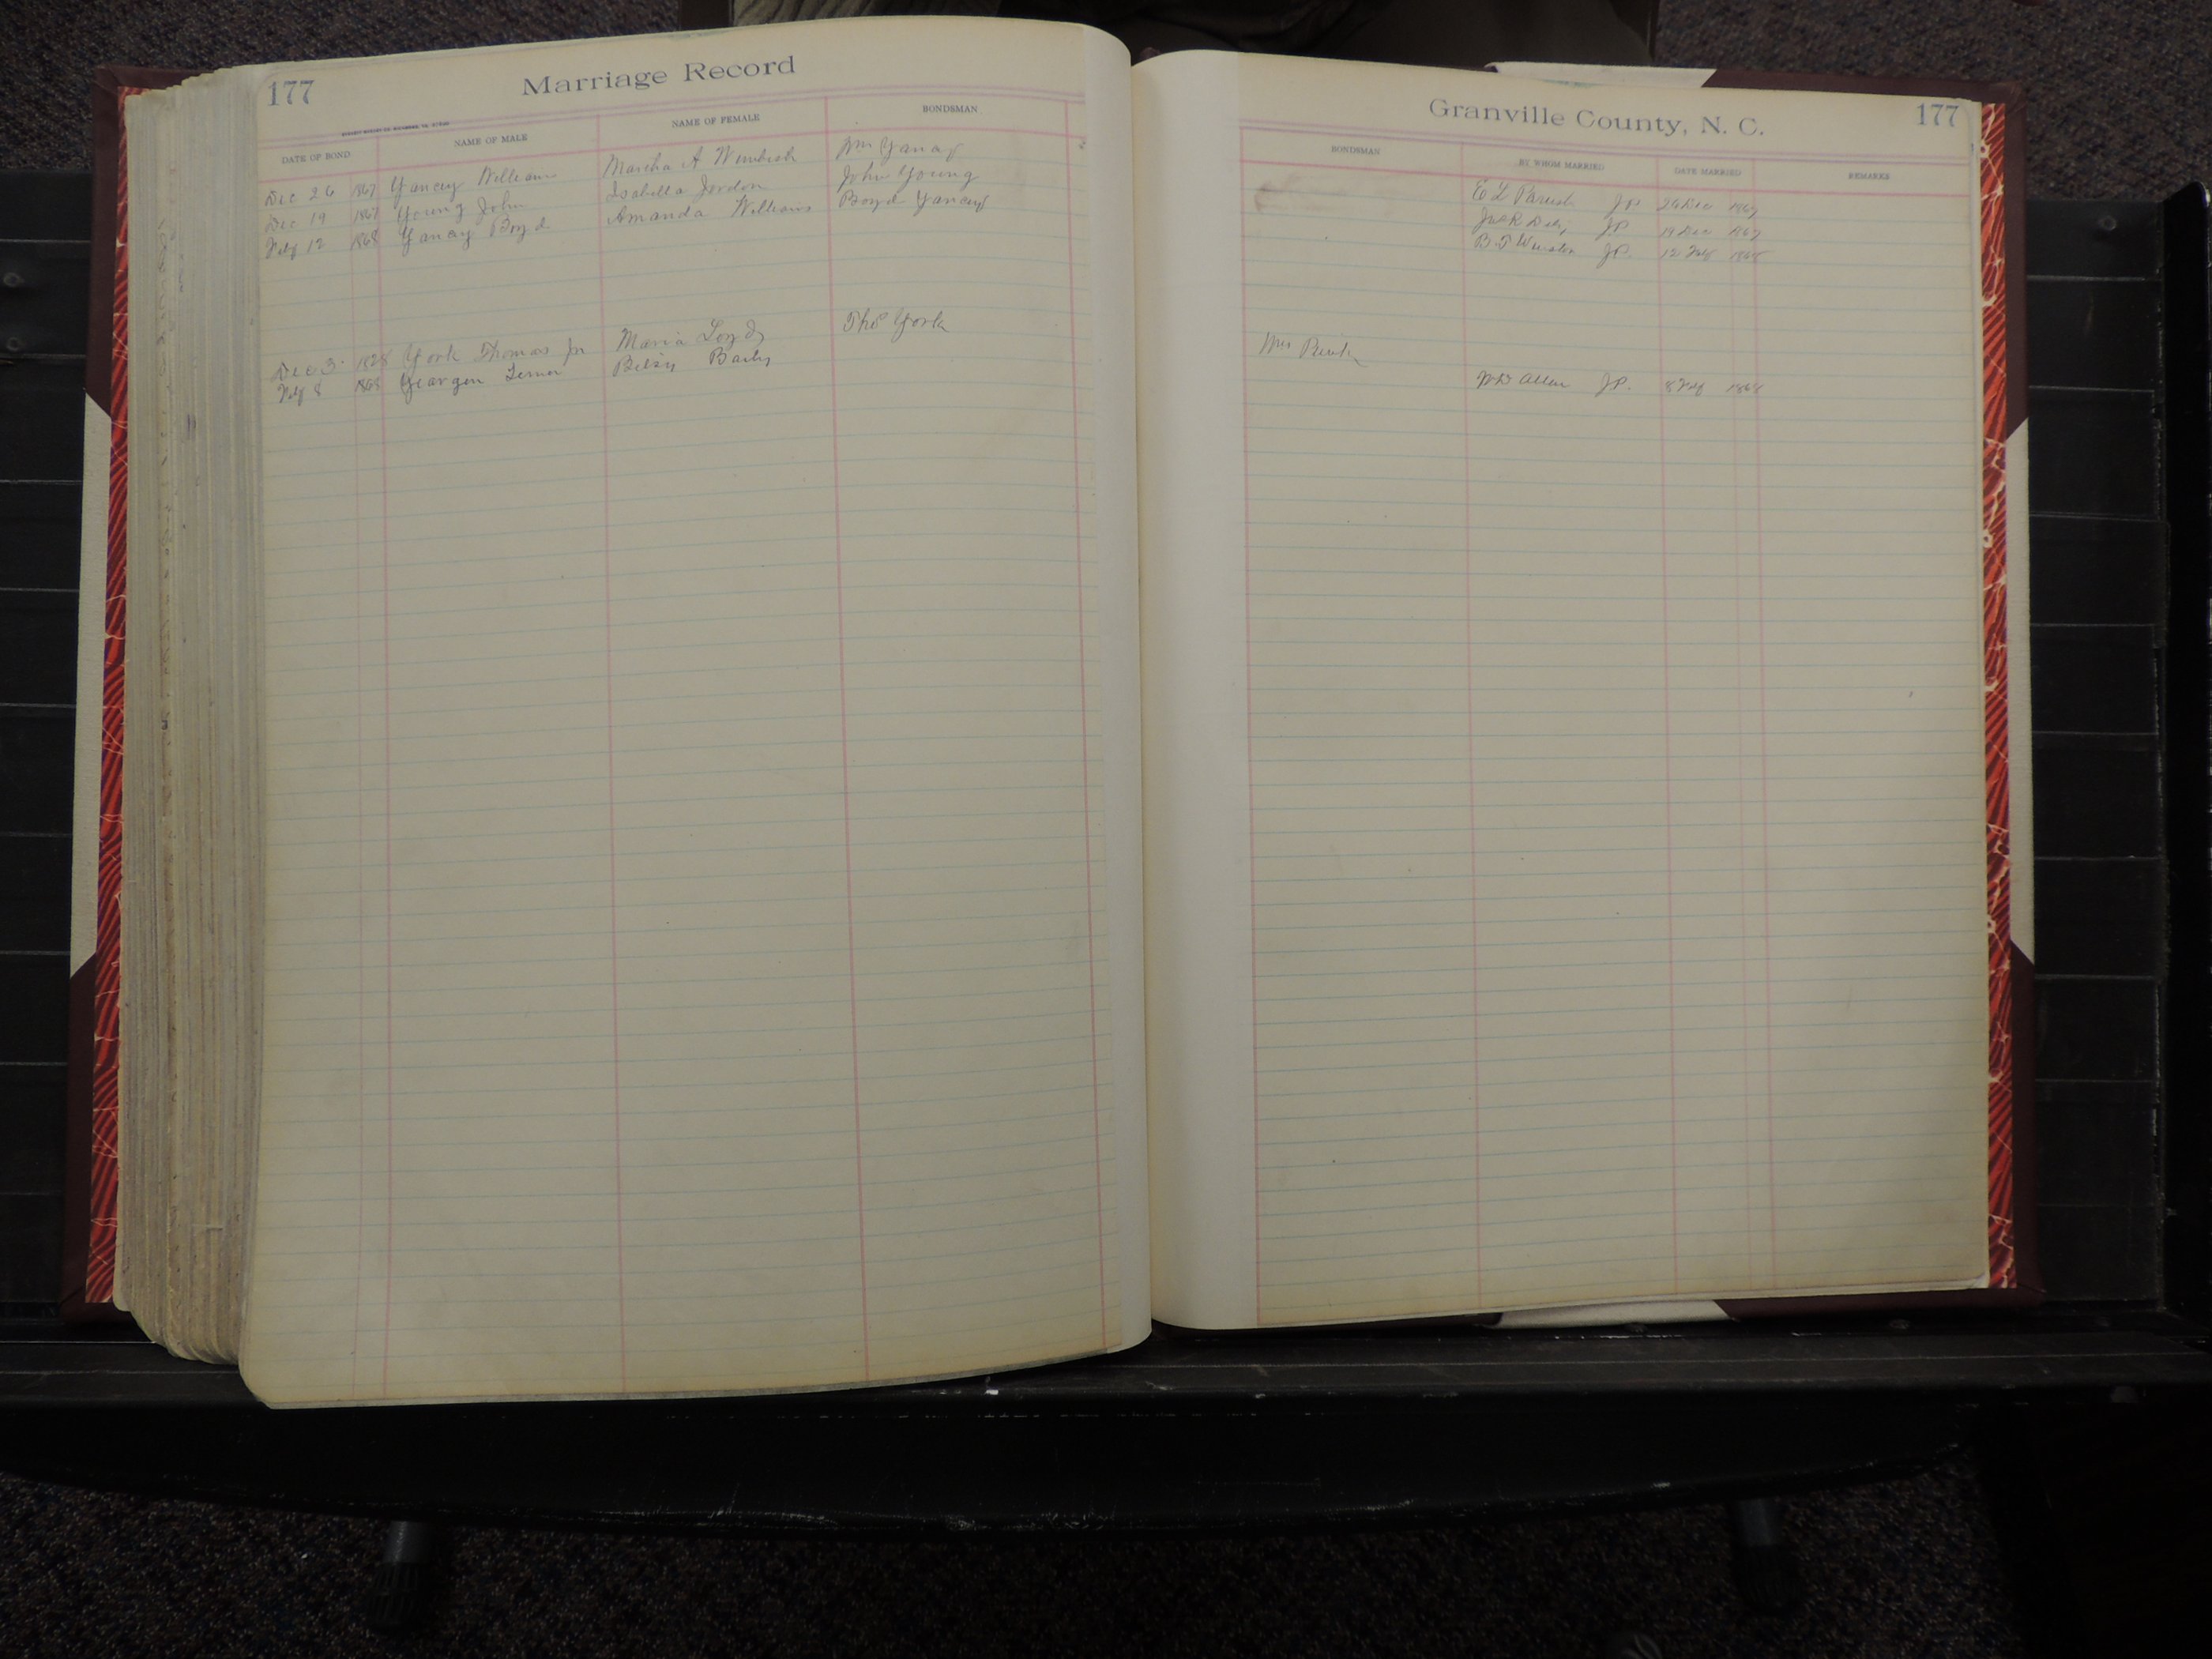 177 Marriage Record
DATE OF BOND NAME OF MALE NAME OF FEMALE BONDSMAN
Dec 26 1867 Yancey William Martha A Wimbish Wm Yancey
Dec 19 1867 Young John Isabella Jordon John Young
Feby 12 1868 Yancey Boyd Amanda Williams Boyd Yancey
Dec 3 1828 York Thomas jr Maria Loyd Thos York
Feby 8 1868 Yeargen Betsy
Granville County, N. C. 177
BONDSMAN BY WHOM MARRIED DATE MARRIED REMARKS
E L Parish JP 26 Dec 1867
JP 19 Dec 1867
B F Winston JP. 12 Feby 1868
Wm
Allen JP. 8 Feby 1868